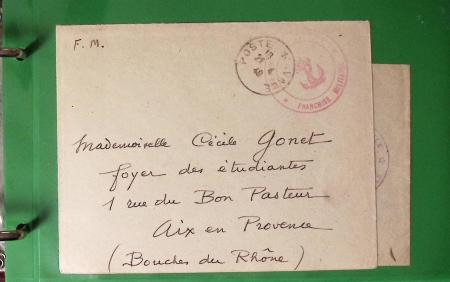 F. M.
POSTE
FRANCHISE MILITAIRE
Mademoiselle Cécile Gonet
foyer des étudiantes
1 rue du Bon Pasteur
Aix en Provence
(Bouches du Rhône)